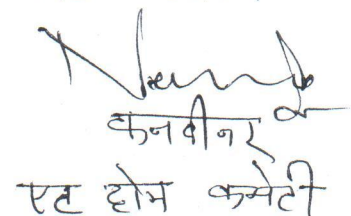 कनवीनर
एट होम कमेटी